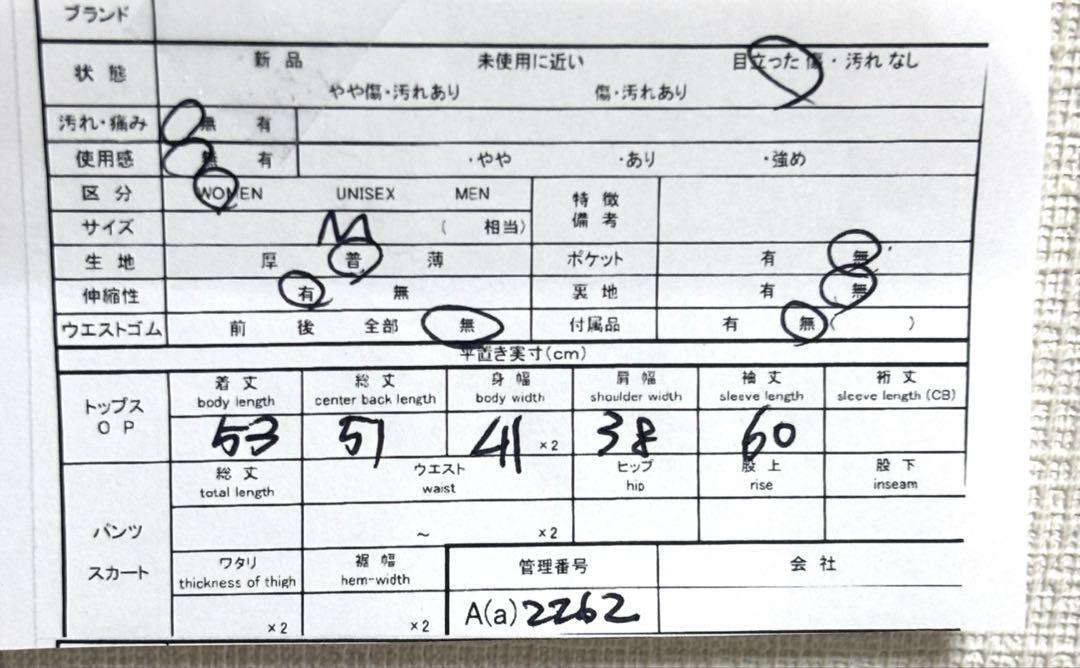 ブランド
状態 新品 未使用に近い 目立った傷・汚れなし
やや傷・汚れあり 傷・汚れあり
汚れ・痛み 無 有
使用感 無 有 ・やや ・あり ・強め
区分 WOMEN UNISEX MEN 特徴
備考
サイズ M ( 相当)
生地 厚 普 薄 ポケット 有 無
伸縮性 有 無 裏地 有 無
ウエストゴム 前 後 全部 無 付属品 有 無( )
平置き実寸(cm)
トップス
OP
着丈 総丈 身幅 肩幅 袖丈 裄丈
body length center back length body width shoulder width sleeve length sleeve length (CB)
53 51 41 ×2 38 60
総丈 ウエスト ヒップ 股上 股下
total length waist hip rise inseam
パンツ ~ ×2
スカート
ワタリ 裾幅 管理番号 会社
thickness of thigh hem-width
×2 ×2 A(a)2262